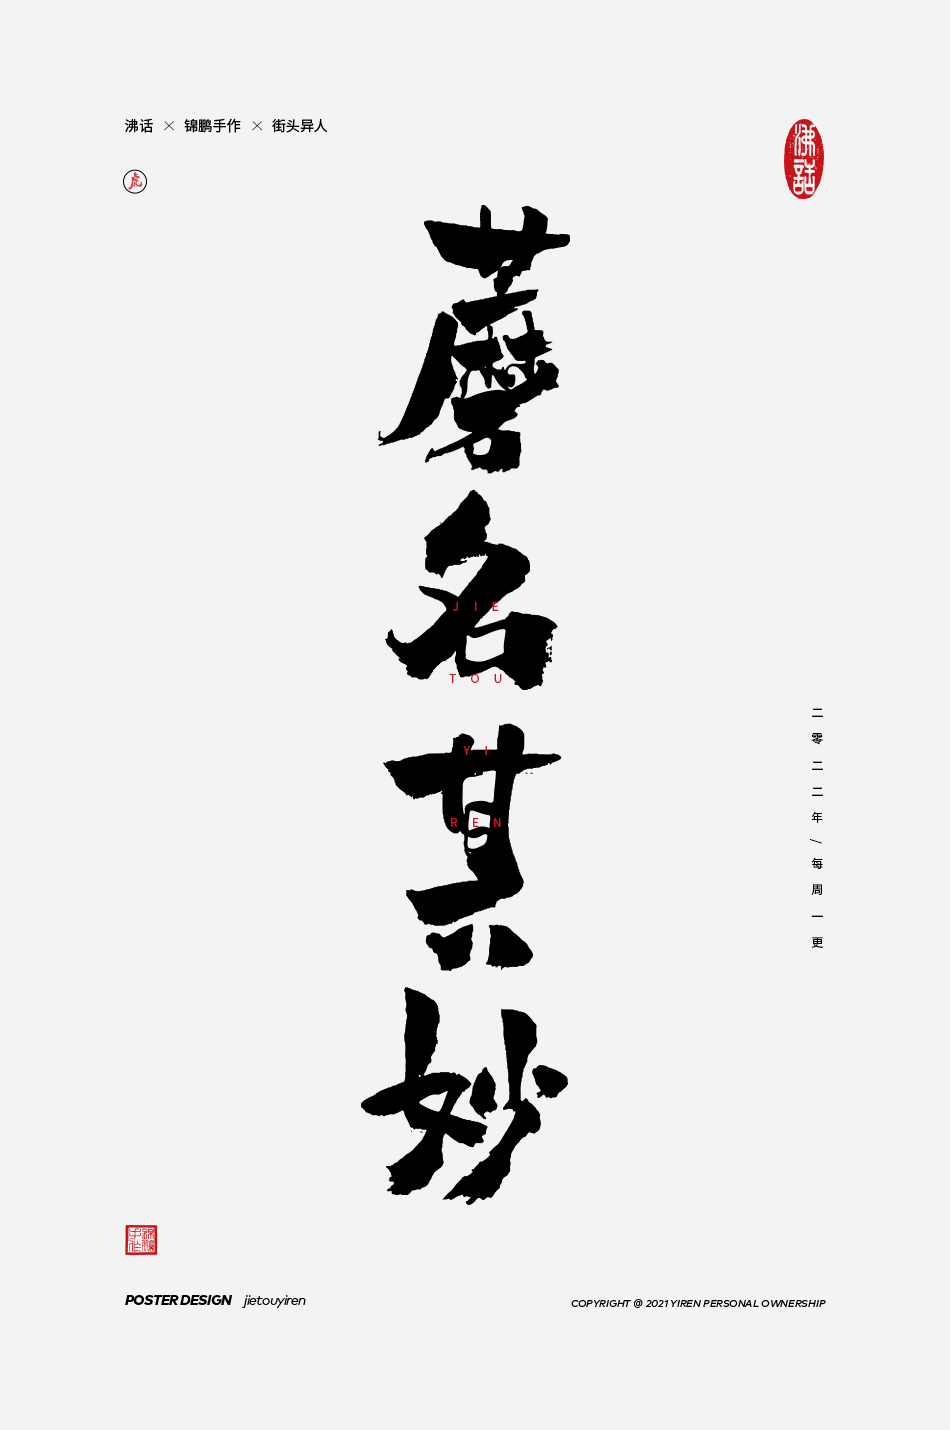 沸话 × 锦鹏手作 × 街头异人
沸話
虎
蘑名其妙
JIE
TOU
YI
REN
二零二二年/每周一更
POSTER DESIGN jietouyiren
COPYRIGHT @ 2021 YIREN PERSONAL OWNERSHIP